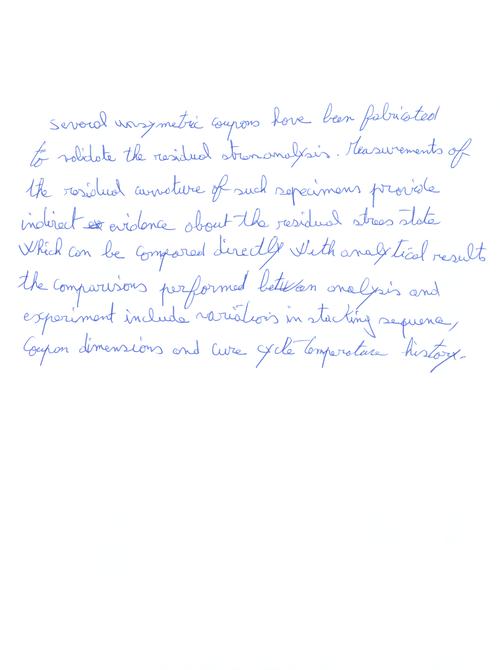 several unsymetric coupons have been fabricated
to validate the residual stress analysis. Measurements of
the residual curvature of such sepecimens provide
indirect evidence about the residual stress state
which can be compared directly with analytical results
the comparisons performed between analysis and
experiment include variations in stacking sequence,
coupon dimensions and cure cycle temperature history.